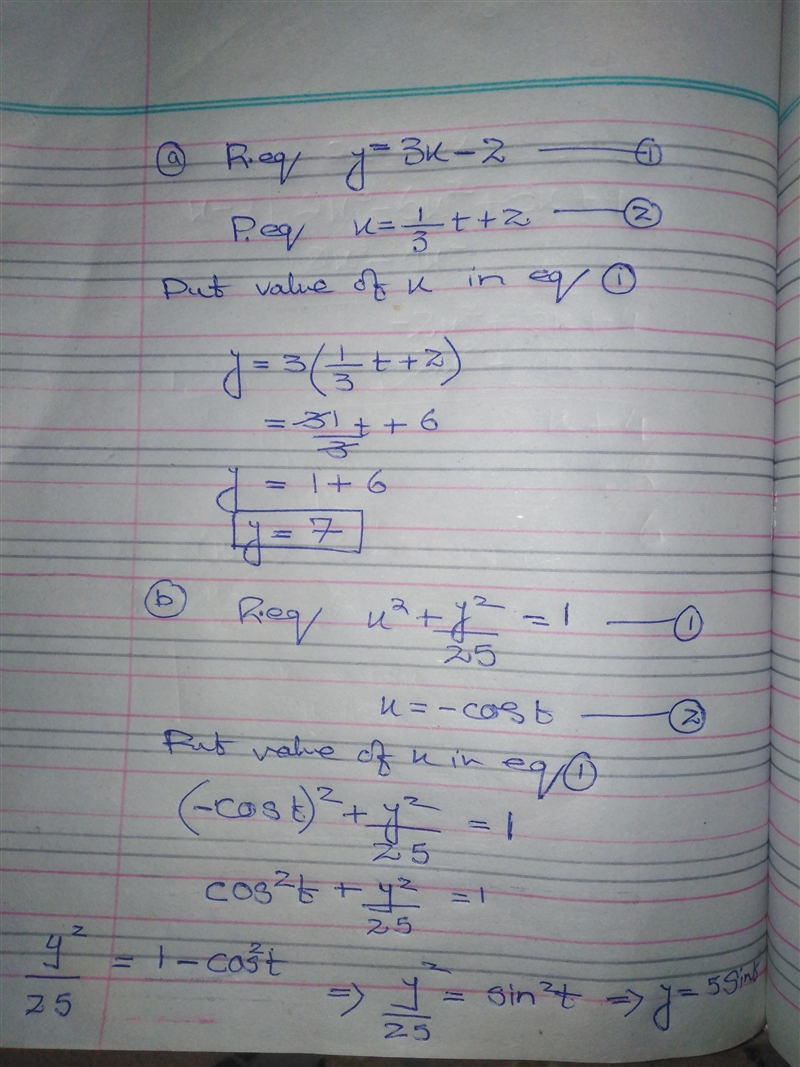 ⓐ R.eq y = 3x - 2 —— ①
P.eq x = 1/3 t + 2 —— ②
Put value of x in eq ①
y = 3(1/3 t + 2)
= 31/3 t + 6
y = 1 + 6
y = 7
ⓑ R.eq x² + y²/25 = 1 —— ①
x = -cost —— ②
Put value of x in eq ①
(-cost)² + y²/25 = 1
cos²t + y²/25 = 1
y²/25 = 1 - cos²t ⇒ y²/25 = sin²t ⇒ y = 5Sint